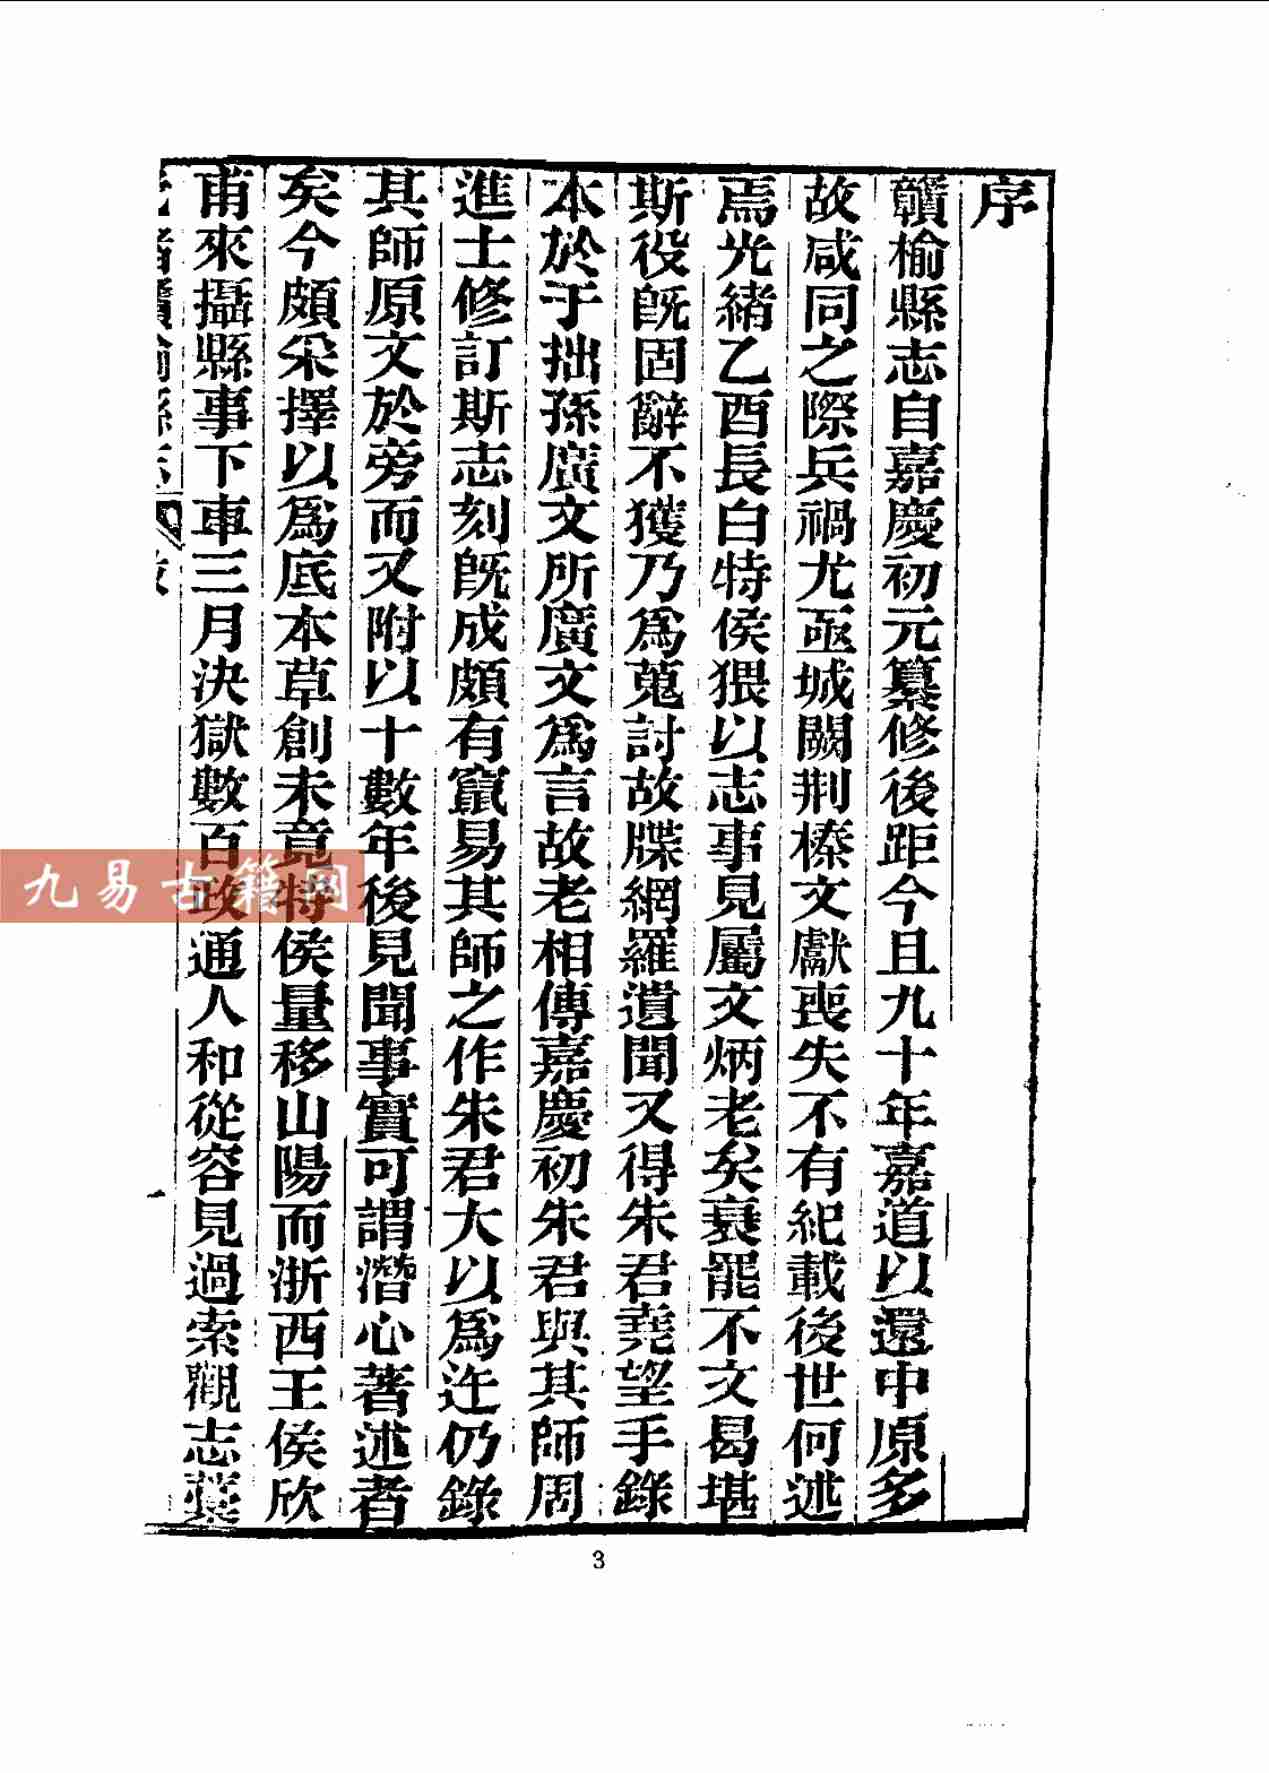 序
贛榆縣志自嘉慶初元纂修後距今且九十年嘉道以還中原多
故咸同之際兵禍尤亟城闕荆榛文獻喪失不有紀載後世何述
焉光緒乙酉長白特侯猥以志事見屬文炳老矣衰罷不文曷堪
斯役旣固辭不獲乃爲蒐討故牒網羅遺聞又得朱君堯望手錄
本於于拙孫廣文所廣文爲言故老相傳嘉慶初朱君與其師周
進士修訂斯志刻旣成頗有竄易其師之作朱君大以爲迕仍錄
其師原文於旁而又附以十數年後見聞事實可謂潛心著述者
矣今頗采擇以爲底本草創未竟特侯量移山陽而浙西王侯欣
甫來攝縣事下車三月決獄數百政通人和從容見過索觀志藁
九易古籍网
3